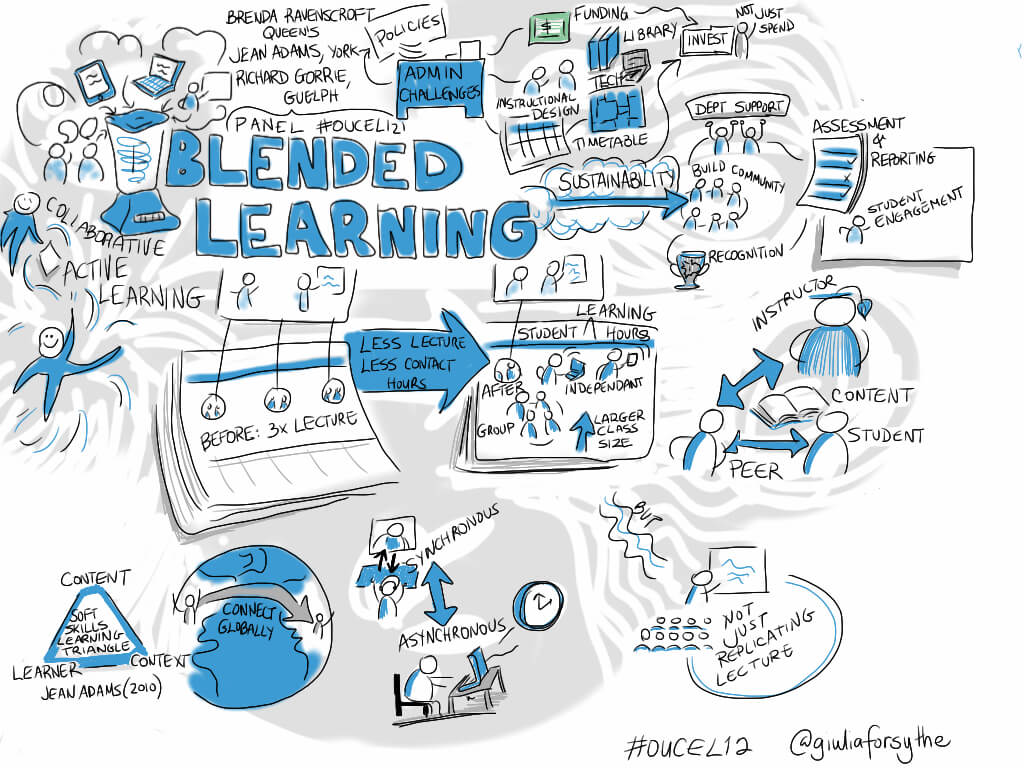 BRENDA RAVENSCROFT
QUEEN'S
JEAN ADAMS, YORK
RICHARD GORRIE,
GUELPH
PANEL #OUCEL121
BLENDED
LEARNING
POLICIES
ADMIN
CHALLENGES
FUNDING
$
LIBRARY
INVEST
NOT JUST
SPEND
TECH
INSTRUCTIONAL
DESIGN
TIMETABLE
DEPT SUPPORT
SUSTAINABILITY
BUILD COMMUNITY
RECOGNITION
ASSESSMENT
&
REPORTING
STUDENT
ENGAGEMENT
COLLABORATIVE
ACTIVE
LEARNING
BEFORE: 3X LECTURE
LESS LECTURE
LESS CONTACT
HOURS
LEARNING
STUDENT HOURS
AFTER
INDEPENDANT
GROUP
LARGER
CLASS
SIZE
INSTRUCTOR
CONTENT
STUDENT
PEER
CONTENT
SOFT
SKILLS
LEARNING
TRIANGLE
LEARNER
CONTEXT
JEAN ADAMS (2010)
CONNECT
GLOBALLY
SYNCHRONOUS
ASYNCHRONOUS
BUT
NOT
JUST
REPLICATING
LECTURE
#OUCEL12
@giuliaforsythe